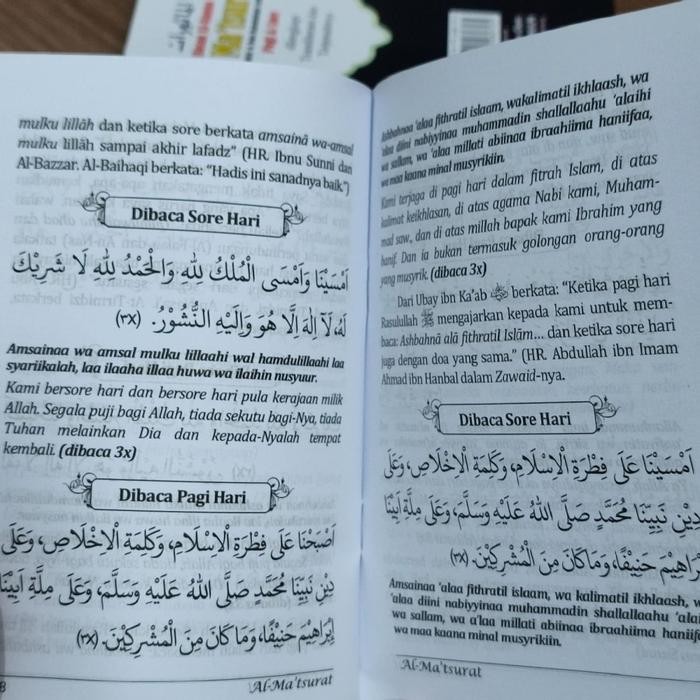 mulku lillâh dan ketika sore berkata amsainâ wa-amsal
mulku lillâh sampai akhir lafadz" (HR. Ibnu Sunni dan
Al-Bazzar. Al-Baihaqi berkata: "Hadis ini sanadnya baik")
Dibaca Sore Hari
اَمْسَيْنَا وَاَمْسَى الْمُلْكُ لِلّٰهِ وَالْحَمْدُ لِلّٰهِ لَا شَرِيْكَ
لَهُ، لَآ اِلٰهَ اِلَّا هُوَ وَاِلَيْهِ النُّشُوْرُ. (٣x)
Amsainaa wa amsal mulku lillaahi wal hamdulillaahi laa
syariikalah, laa ilaaha illaa huwa wa ilaihin nusyuur.
Kami bersore hari dan bersore hari pula kerajaan milik
Allah. Segala puji bagi Allah, tiada sekutu bagi-Nya, tiada
Tuhan melainkan Dia dan kepada-Nyalah tempat
kembali. (dibaca 3x)
Dibaca Pagi Hari
اَصْبَحْنَا عَلَى فِطْرَةِ الْاِسْلَامِ، وَكَلِمَةِ الْاِخْلَاصِ، وَعَلَى
دِيْنِ نَبِيِّنَا مُحَمَّدٍ صَلَّى اللهُ عَلَيْهِ وَسَلَّمَ، وَعَلَى مِلَّةِ اَبِيْنَا
اِبْرَاهِيْمَ حَنِيْفًا، وَمَا كَانَ مِنَ الْمُشْرِكِيْنَ. (٣x)
8
Al-Ma'tsurat
Ashbahnaa 'alaa fithratil islaam, wakalimatil ikhlaash, wa
'alaa diini nabiyyinaa muhammadin shallallaahu 'alaihi
wa sallam, wa 'alaa millati abiinaa ibraahiima haniifaa,
wa maa kaana minal musyrikiin.
Kami terjaga di pagi hari dalam fitrah Islam, di atas
kalimat keikhlasan, di atas agama Nabi kami, Muham-
mad saw., dan di atas millah bapak kami Ibrahim yang
hanif. Dan ia bukan termasuk golongan orang-orang
yang musyrik. (dibaca 3x)
Dari Ubay ibn Ka'ab berkata: "Ketika pagi hari
Rasulullah ﷺ mengajarkan kepada kami untuk mem-
baca: Ashbahnâ alâ fithratil Islâm... dan ketika sore hari
juga dengan doa yang sama." (HR. Abdullah ibn Imam
Ahmad ibn Hanbal dalam Zawaid-nya.
Dibaca Sore Hari
اَمْسَيْنَا عَلَى فِطْرَةِ الْاِسْلَامِ، وَكَلِمَةِ الْاِخْلَاصِ، وَعَلَى
دِيْنِ نَبِيِّنَا مُحَمَّدٍ صَلَّى اللهُ عَلَيْهِ وَسَلَّمَ، وَعَلَى مِلَّةِ اَبِيْنَا
اِبْرَاهِيْمَ حَنِيْفًا، وَمَا كَانَ مِنَ الْمُشْرِكِيْنَ. (٣x)
Amsainaa 'alaa fithratil islaam, wa kalimatil ikhlaash, w
'alaa diini nabiyyinaa muhammadin shallallaahu 'alai
wa sallam, wa a'laa millati abiinaa ibraahiima haniifa
wa maa kaana minal musyrikiin.
Al-Ma'tsurat